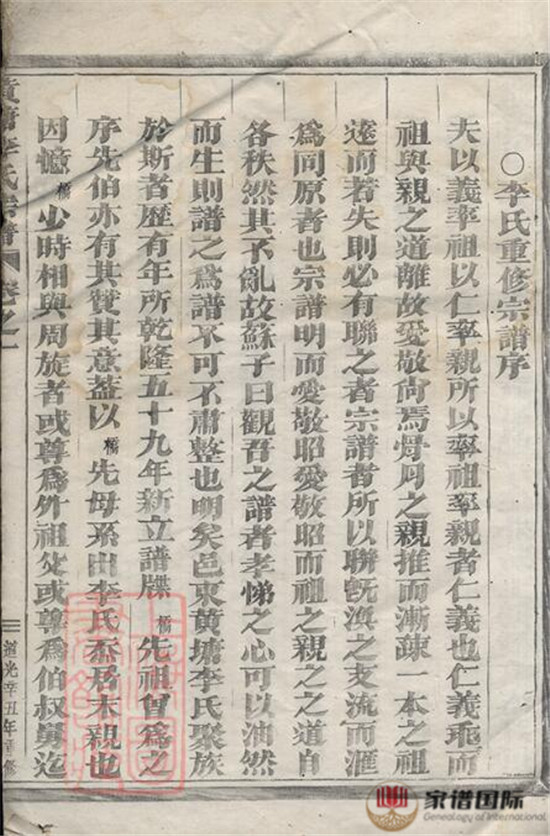 ○李氏重修宗譜序
夫以義率祖以仁率親所以率祖率親者仁義也仁義乖而
祖與親之道離故愛敬尙焉骨肉之親推而漸疎一本之祖
遠而若失則必有聯之者宗譜者所以聯旣渙之支流而滙
爲同原者也宗譜明而愛敬昭愛敬昭而祖之親之之道自
各秩然其不亂故蘇子曰觀吾之譜者孝悌之心可以油然
而生則譜之爲譜不可不肅整也明矣邑東黃塘李氏聚族
於斯者歷有年所乾隆五十九年新立譜牒 橋 先祖曾爲之
序先伯亦有其贊其意蓋以 橋 先母系出李氏忝居末親也
因憶 橋 少時相與周旋者或尊爲外祖父或尊爲伯叔舅迄
黃塘李氏宗譜 卷之一
道光辛丑年重修
家谱国际
Genealogy of International